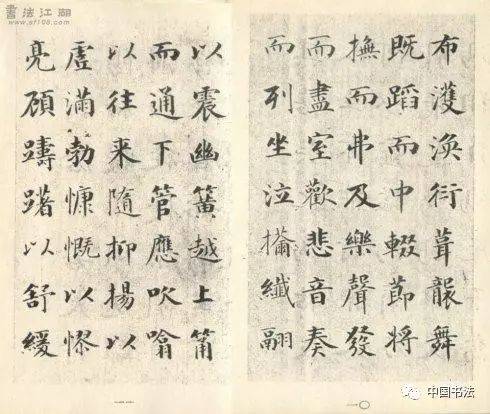 書法江湖
www.sf108.com
布濩渙衍葺襲舞
既蹈而中輟節將
撫而弗及樂聲發
而盡室歡悲音奏
而列坐泣纖翮
以震幽簧越上筩
而通下管應吹噏
以往来隨抑揚以
虛滿勃慷慨以憀
亮顧躊躇以舒緩
中国书法